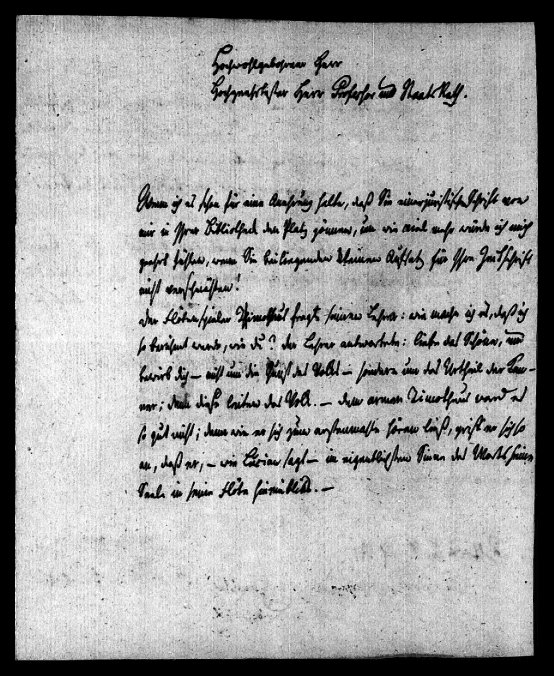 Hochwohlgeborner Herr
Hochgeehrtester Herr Professor und Staats Rath.
Wenn ich es schon für eine Aeußrung halte, daß Sie einer juristische Schrift von
mir in Ihrer Bibliothek den Platz gönnen, um wie viel mehr würde ich mich
geehrt fühlen, wenn Sie beiliegenden kleinen Aufsatz für Ihre Zeitschrift
nicht verschmähten!
Der Flötenspieler Thimotheus fragte seinen Lehrer: wie mache ich es, daß ich
so berühmt werde, wie du? der Lehrer antwortete: liebe das Schöne, und
bewirb dich – nicht um die Gunst des Volks – sondern um das Urtheil der Ken-
ner; denn diese leiten das Volk. – Dem armen Timotheus ward es
so gut nicht; denn wie er sich zum erstenmahle hören ließ, griff er sich so
an, daß er, – wie Lucian sagt – im eigentlichsten Sinne des Worts seine
Seele in seine Flöte hineinblies. –